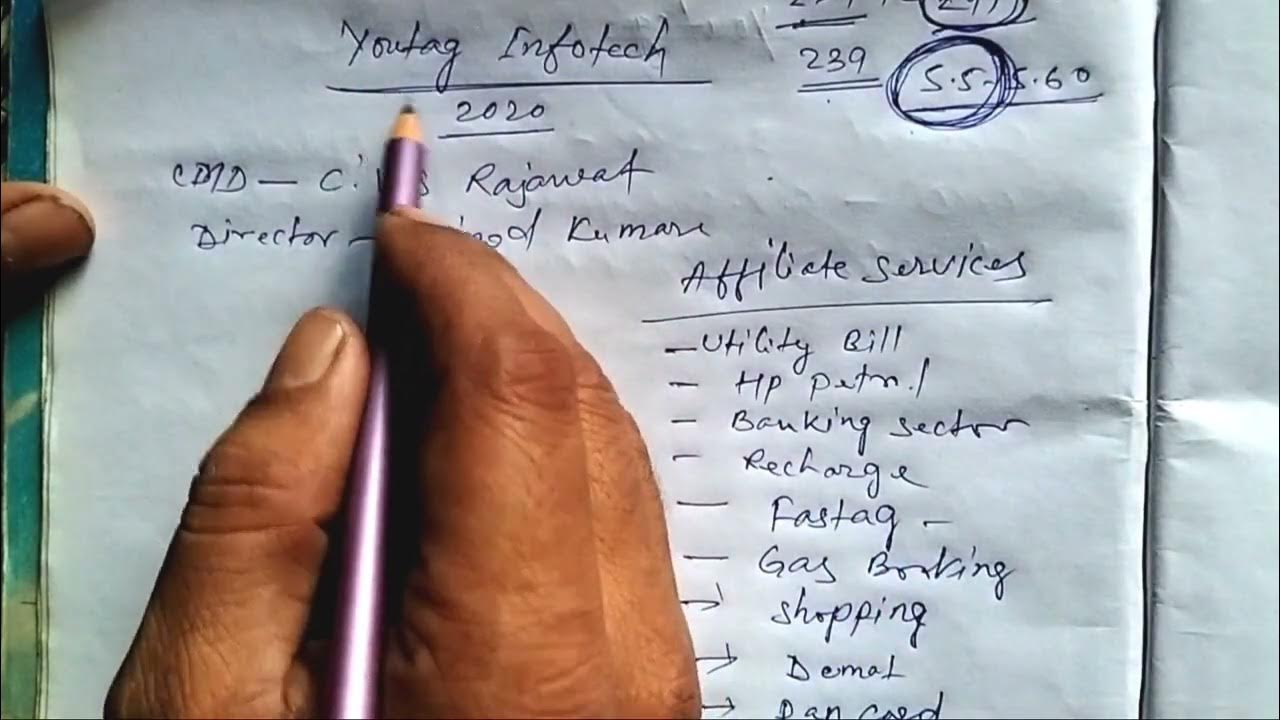 Youtag Infotech
239 5.5-5.60
2020
CMD – C. Rajawat
Director – Kumar
Affiliate services
– Utility Bill
– HP Petrol
– Banking sector
– Recharge
– Fastag –
– Gas Booking
→ Shopping
→ Demat
→ Pan card